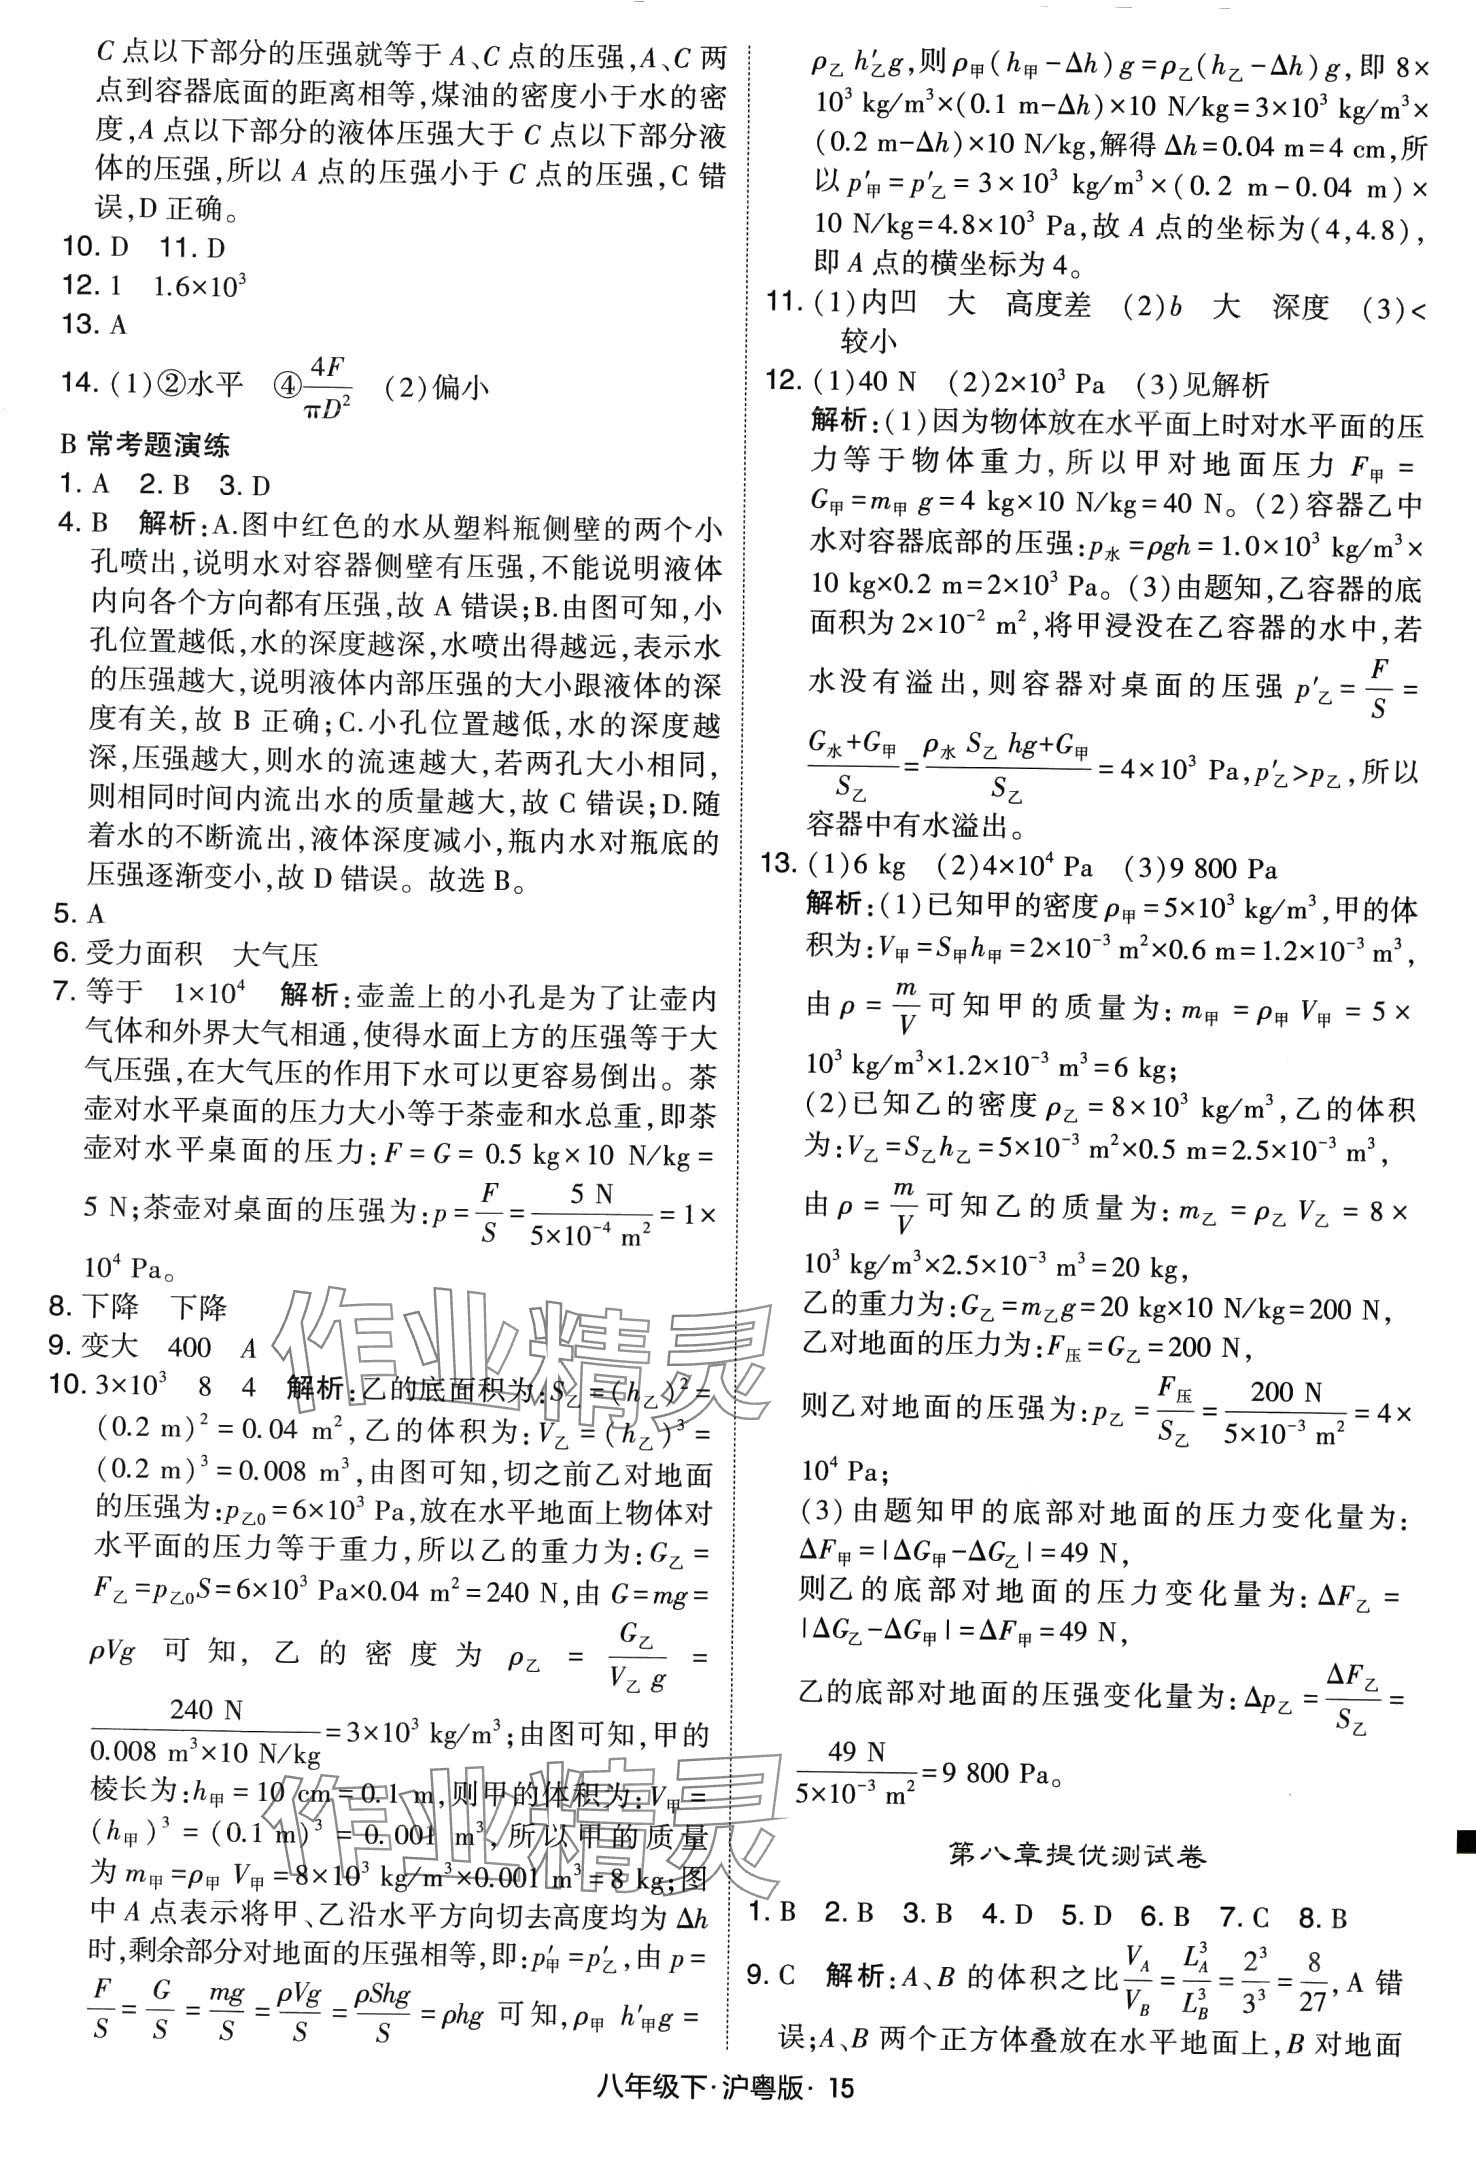 C点以下部分的压强就等于A、C点的压强,A、C两
点到容器底面的距离相等,煤油的密度小于水的密
度,A点以下部分的液体压强大于C点以下部分液
体的压强,所以A点的压强小于C点的压强,C错
误,D正确。
10. D 11. D
12. 1 1.6×10³
13. A
14. (1)②水平 ④4F/πD² (2)偏小
B 常考题演练
1. A 2. B 3. D
4. B 解析:A.图中红色的水从塑料瓶侧壁的两个小
孔喷出,说明水对容器侧壁有压强,不能说明液体
内向各个方向都有压强,故A错误;B.由图可知,小
孔位置越低,水的深度越深,水喷出得越远,表示水
的压强越大,说明液体内部压强的大小跟液体的深
度有关,故B正确;C.小孔位置越低,水的深度越
深,压强越大,则水的流速越大,若两孔大小相同,
则相同时间内流出水的质量越大,故C错误;D.随
着水的不断流出,液体深度减小,瓶内水对瓶底的
压强逐渐变小,故D错误。故选B。
5. A
6. 受力面积 大气压
7. 等于 1×10⁴ 解析:壶盖上的小孔是为了让壶内
气体和外界大气相通,使得水面上方的压强等于大
气压强,在大气压的作用下水可以更容易倒出。茶
壶对水平桌面的压力大小等于茶壶和水总重,即茶
壶对水平桌面的压力:F=G=0.5 kg×10 N/kg=
5 N;茶壶对桌面的压强为:p=F/S=5 N/(5×10⁻⁴ m²)=1×
10⁴ Pa。
8. 下降 下降
9. 变大 400 A
10. 3×10³ 8 4 解析:乙的底面积为:S乙=(h乙)²=
(0.2 m)²=0.04 m²,乙的体积为:V乙=(h乙)³=
(0.2 m)³=0.008 m³,由图可知,切之前乙对地面
的压强为:p乙0=6×10³ Pa,放在水平地面上物体对
水平面的压力等于重力,所以乙的重力为:G乙=
F乙=p乙0S=6×10³ Pa×0.04 m²=240 N,由G=mg=
ρVg可知,乙的密度为ρ乙=G乙/(V乙g)=
240 N/(0.008 m³×10 N/kg)=3×10³ kg/m³;由图可知,甲的
棱长为:h甲=10 cm=0.1 m,则甲的体积为:V甲=
(h甲)³=(0.1 m)³=0.001 m³,所以甲的质量
为m甲=ρ甲V甲=8×10³ kg/m³×0.001 m³=8 kg;图
中A点表示将甲、乙沿水平方向切去高度均为Δh
时,剩余部分对地面的压强相等,即:p′甲=p′乙,由p=
F/S=G/S=mg/S=ρVg/S=ρShg/S=ρhg可知,ρ甲h′甲g=
ρ乙h′乙g,则ρ甲(h甲-Δh)g=ρ乙(h乙-Δh)g,即8×
10³ kg/m³×(0.1 m-Δh)×10 N/kg=3×10³ kg/m³×
(0.2 m-Δh)×10 N/kg,解得Δh=0.04 m=4 cm,所
以p′甲=p′乙=3×10³ kg/m³×(0.2 m-0.04 m)×
10 N/kg=4.8×10³ Pa,故A点的坐标为(4,4.8),
即A点的横坐标为4。
11. (1)内凹 大 高度差 (2)b 大 深度 (3)<
较小
12. (1)40 N (2)2×10³ Pa (3)见解析
解析:(1)因为物体放在水平面上时对水平面的压
力等于物体重力,所以甲对地面压力F甲=
G甲=m甲g=4 kg×10 N/kg=40 N。(2)容器乙中
水对容器底部的压强:p水=ρgh=1.0×10³ kg/m³×
10 kg×0.2 m=2×10³ Pa。(3)由题知,乙容器的底
面积为2×10⁻² m²,将甲浸没在乙容器的水中,若
水没有溢出,则容器对桌面的压强p′乙=F/S=
(G水+G甲)/S乙=(ρ水S乙hg+G甲)/S乙=4×10³ Pa,p′乙>p乙,所以
容器中有水溢出。
13. (1)6 kg (2)4×10⁴ Pa (3)9 800 Pa
解析:(1)已知甲的密度ρ甲=5×10³ kg/m³,甲的体
积为:V甲=S甲h甲=2×10⁻³ m²×0.6 m=1.2×10⁻³ m³,
由ρ=m/V可知甲的质量为:m甲=ρ甲V甲=5×
10³ kg/m³×1.2×10⁻³ m³=6 kg;
(2)已知乙的密度ρ乙=8×10³ kg/m³,乙的体积
为:V乙=S乙h乙=5×10⁻³ m²×0.5 m=2.5×10⁻³ m³,
由ρ=m/V可知乙的质量为:m乙=ρ乙V乙=8×
10³ kg/m³×2.5×10⁻³ m³=20 kg,
乙的重力为:G乙=m乙g=20 kg×10 N/kg=200 N,
乙对地面的压力为:F压=G乙=200 N,
则乙对地面的压强为:p乙=F压/S乙=200 N/(5×10⁻³ m²)=4×
10⁴ Pa;
(3)由题知甲的底部对地面的压力变化量为:
ΔF甲=|ΔG甲-ΔG乙|=49 N,
则乙的底部对地面的压力变化量为:ΔF乙=
|ΔG乙-ΔG甲|=ΔF甲=49 N,
乙的底部对地面的压强变化量为:Δp乙=ΔF乙/S乙=
49 N/(5×10⁻³ m²)=9 800 Pa。
第八章提优测试卷
1. B 2. B 3. B 4. D 5. D 6. B 7. C 8. B
9. C 解析:A、B的体积之比V_A/V_B=L_A³/L_B³=2³/3³=8/27,A错
误;A、B两个正方体叠放在水平地面上,B对地面
八年级下·沪粤版·15
作业精灵
作业精灵